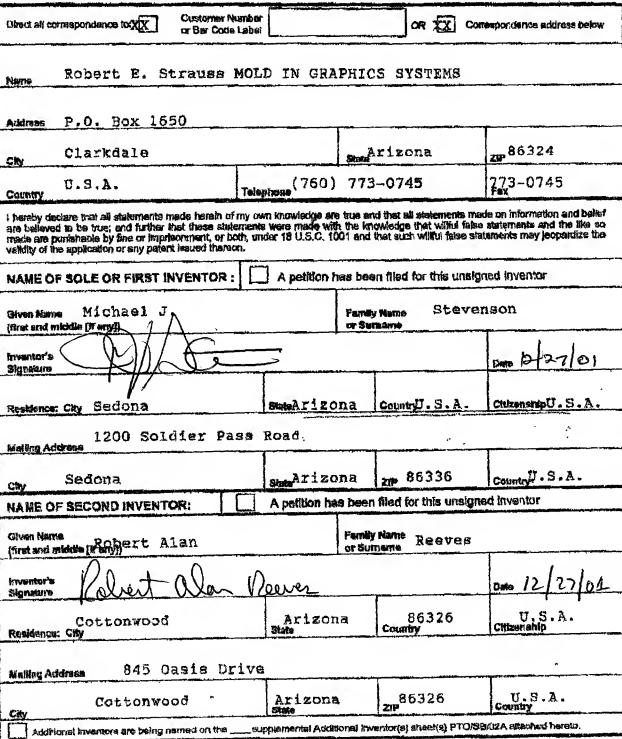 Direct all correspondence to: XX Customer Number or Bar Code Label OR XX Correspondence address below
Name Robert E. Strauss MOLD IN GRAPHICS SYSTEMS
Address P.O. Box 1650
City Clarkdale State Arizona ZIP 86324
Country U.S.A. Telephone (760) 773-0745 Fax 773-0745
I hereby declare that all statements made herein of my own knowledge are true and that all statements made on information and belief
are believed to be true; and further that these statements were made with the knowledge that willful false statements and the like so
made are punishable by fine or imprisonment, or both, under 18 U.S.C. 1001 and that such willful false statements may jeopardize the
validity of the application or any patent issued thereon.
NAME OF SOLE OR FIRST INVENTOR : A petition has been filed for this unsigned inventor
Given Name (first and middle [if any]) Michael J. Family Name or Surname Stevenson
Inventor's Signature Date 12/27/01
Residence: City Sedona State Arizona Country U.S.A. Citizenship U.S.A.
Mailing Address 1200 Soldier Pass Road
City Sedona State Arizona ZIP 86336 Country U.S.A.
NAME OF SECOND INVENTOR: A petition has been filed for this unsigned inventor
Given Name (first and middle [if any]) Robert Alan Family Name or Surname Reeves
Inventor's Signature Robert Alan Reeves Date 12/27/01
Residence: City Cottonwood State Arizona Country 86326 Citizenship U.S.A.
Mailing Address 845 Oasis Drive
City Cottonwood State Arizona ZIP 86326 Country U.S.A.
Additional inventors are being named on the ___ supplemental Additional Inventor(s) sheet(s) PTO/SB/02A attached hereto.